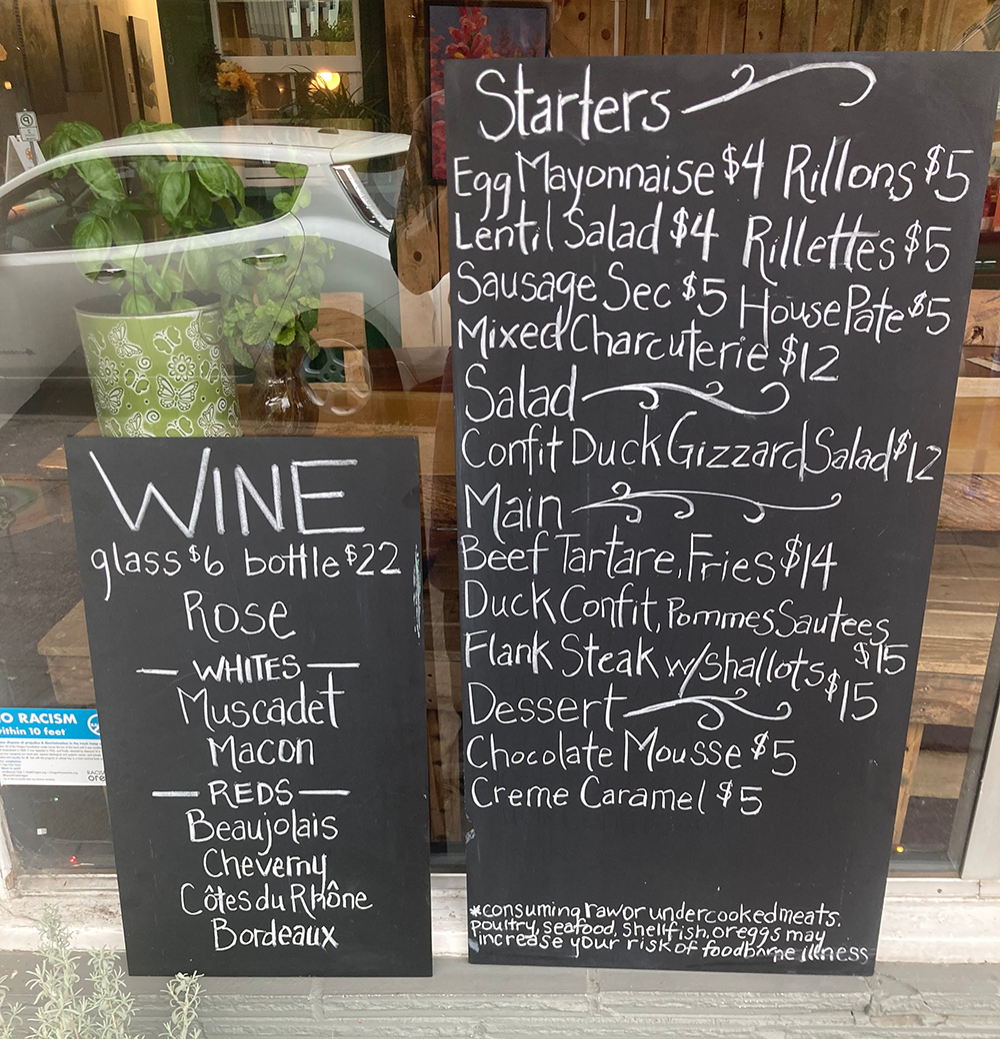 Starters
Egg Mayonnaise $4 Rillons $5
Lentil Salad $4 Rillettes $5
Sausage Sec $5 House Pate $5
Mixed Charcuterie $12
Salad
Confit Duck Gizzard Salad $12
Main
Beef Tartare, Fries $14
Duck Confit, Pommes Sautees
$15
Flank Steak w/Shallots $15
Dessert
Chocolate Mousse $5
Creme Caramel $5
*consuming raw or undercooked meats,
poultry, seafood, shellfish, or eggs may
increase your risk of foodborne illness
WINE
glass $6 bottle $22
Rose
WHITES
Muscadet
Macon
REDS
Beaujolais
Cheverny
Côtes du Rhône
Bordeaux
O RACISM
ithin 10 feet